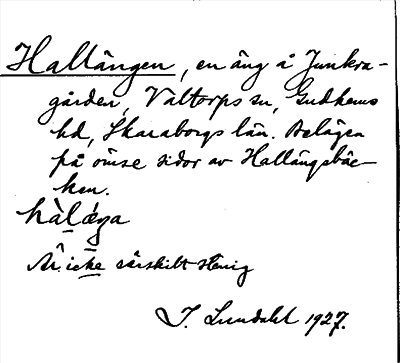 Hallängen, en äng å Junkra-
gården, Valtorps sn, Gudhems
hd, Skaraborgs län. Belägen
på ömse sidor av Hallängsbäc-
ken.
Är icke särskilt stenig
J. Lundahl 1927.